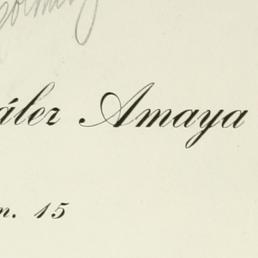 ález Amaya
m. 15